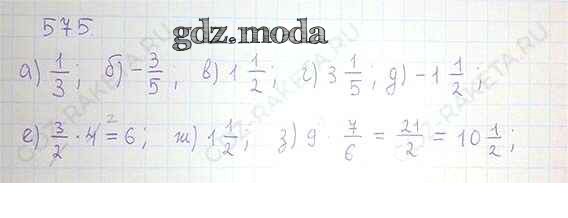 575.
gdz.moda
а) 1/3; б) -3/5; в) 1 1/2; г) 3 1/5; д) -1 1/2;
е) 3/2 · 4 2 = 6; ж) 1 1/2; з) 9 · 7/6 = 21/2 = 10 1/2;
GDZ-RAKETA.RU